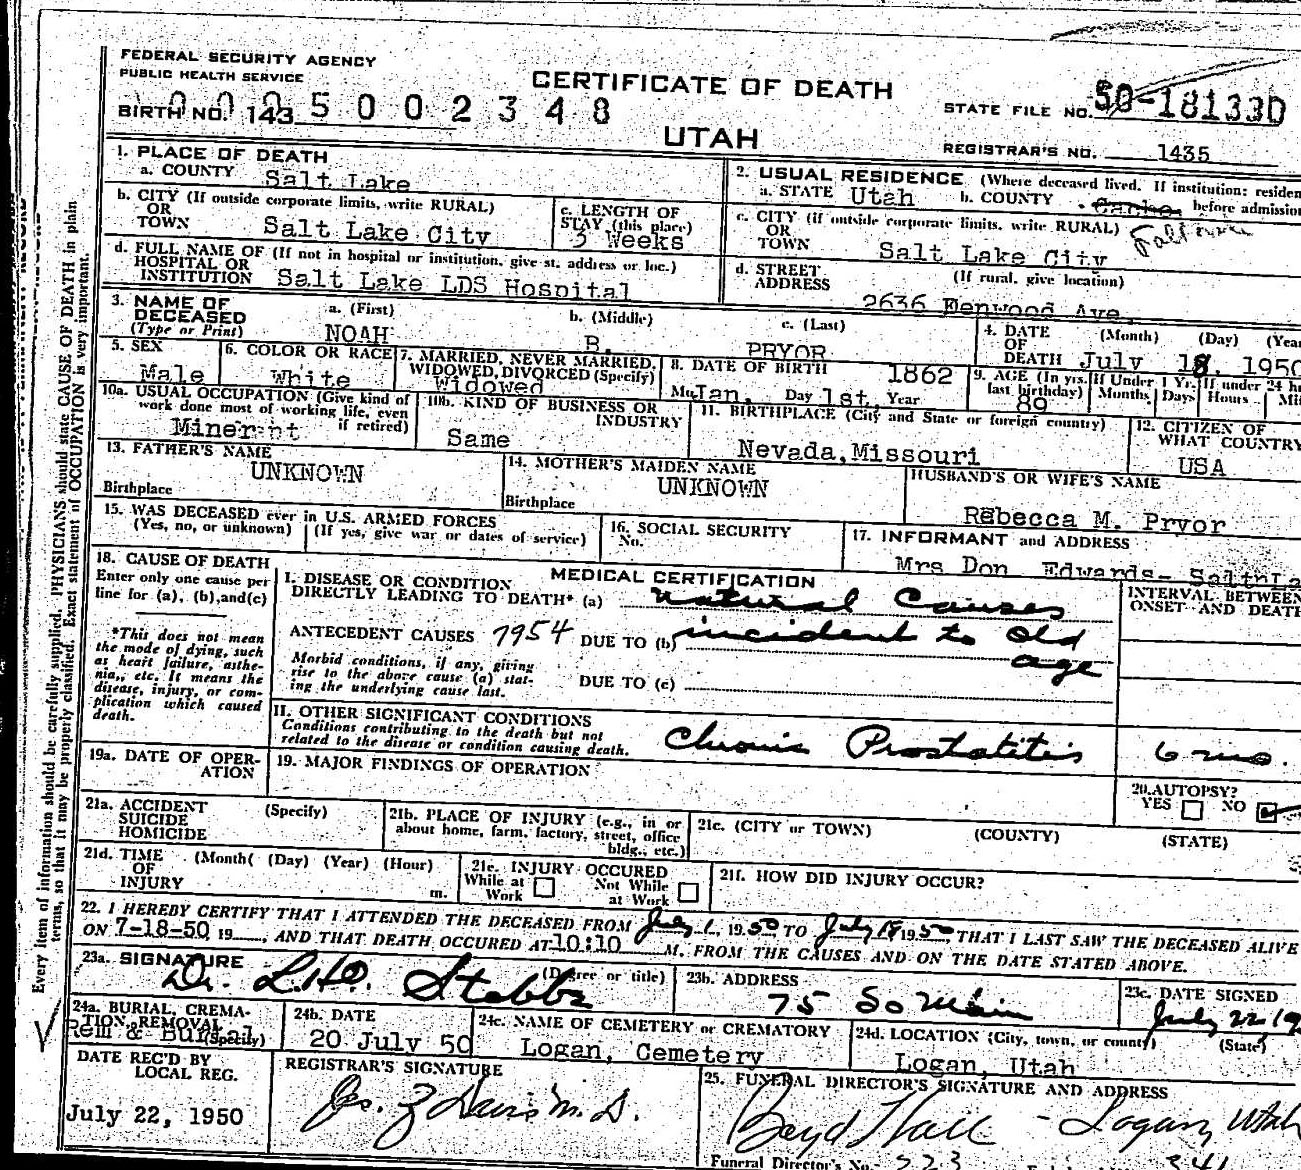 FEDERAL SECURITY AGENCY
PUBLIC HEALTH SERVICE
CERTIFICATE OF DEATH
STATE FILE NO. 50-181330
BIRTH NO. 143 0025002348
UTAH
REGISTRAR'S NO. 1435
1. PLACE OF DEATH
a. COUNTY Salt Lake
2. USUAL RESIDENCE (Where deceased lived. If institution: residen
a. STATE Utah b. COUNTY Cache before admission
b. CITY (If outside corporate limits, write RURAL)
OR
TOWN Salt Lake City
c. LENGTH OF
STAY (this place)
3 Weeks
c. CITY (if outside corporate limits, write RURAL)
OR
TOWN Salt Lake City
d. FULL NAME OF (If not in hospital or institution, give st. address or loc.)
HOSPITAL OR
INSTITUTION Salt Lake LDS Hospital
d. STREET (If rural, give location)
ADDRESS
2636 Ave.
3. NAME OF
DECEASED
(Type or Print)
a. (First)
NOAH
b. (Middle)
B.
c. (Last)
PRYOR
4. DATE (Month) (Day) (Year
OF
DEATH July 18, 1950
5. SEX
Male
6. COLOR OR RACE
White
7. MARRIED, NEVER MARRIED,
WIDOWED, DIVORCED (Specify)
Widowed
8. DATE OF BIRTH 1862
Mo. Jan, Day 1st, Year
9. AGE (In yrs.
last birthday)
89
If Under 1 Yr.
Months Days
If under 24 h
Hours Mi
10a. USUAL OCCUPATION (Give kind of
work done most of working life, even
if retired)
Miner
10b. KIND OF BUSINESS OR
INDUSTRY
Same
11. BIRTHPLACE (City and State or foreign country)
Nevada, Missouri
12. CITIZEN OF
WHAT COUNTRY
USA
13. FATHER'S NAME
UNKNOWN
Birthplace
14. MOTHER'S MAIDEN NAME
UNKNOWN
Birthplace
HUSBAND'S OR WIFE'S NAME
Rebecca M. Pryor
15. WAS DECEASED ever in U.S. ARMED FORCES
(Yes, no, or unknown) (If yes, give war or dates of service)
16. SOCIAL SECURITY
No.
17. INFORMANT and ADDRESS
Mrs Don Edwards- Salt La
18. CAUSE OF DEATH
Enter only one cause per
line for (a), (b), and (c)
*This does not mean
the mode of dying, such
as heart failure, asthe-
nia, etc. It means the
disease, injury, or com-
plication which caused
death.
MEDICAL CERTIFICATION
I. DISEASE OR CONDITION
DIRECTLY LEADING TO DEATH* (a) natural Causes
ANTECEDENT CAUSES 7954 DUE TO (b) incident to old
age
Morbid conditions, if any, giving
rise to the above cause (a) stat-
ing the underlying cause last.
DUE TO (c)
INTERVAL BETWEEN
ONSET AND DEATH
II. OTHER SIGNIFICANT CONDITIONS
Conditions contributing to the death but not
related to the disease or condition causing death.
Chronic Prostatitis 6 mo.
19a. DATE OF OPER-
ATION
19. MAJOR FINDINGS OF OPERATION
20. AUTOPSY?
YES NO
21a. ACCIDENT (Specify)
SUICIDE
HOMICIDE
21b. PLACE OF INJURY (e.g., in or
about home, farm, factory, street, office
bldg., etc.)
21c. (CITY or TOWN) (COUNTY) (STATE)
21d. TIME (Month( (Day) (Year) (Hour)
OF
INJURY m.
21e. INJURY OCCURED
While at Work Not While at Work
21f. HOW DID INJURY OCCUR?
22. I HEREBY CERTIFY THAT I ATTENDED THE DECEASED FROM July 1, 1950 TO July 18 1950, THAT I LAST SAW THE DECEASED ALIVE
ON 7-18-50, 19____, AND THAT DEATH OCCURED AT 10:10 M. FROM THE CAUSES AND ON THE DATE STATED ABOVE.
23a. SIGNATURE (Degree or title)
Dr. L.H.O. Stobbe
23b. ADDRESS
75 So Main
23c. DATE SIGNED
July 22 19
24a. BURIAL, CREMA-
TION, REMOVAL
(Specify)
Rem & Burial
24b. DATE
20 July 50
24c. NAME OF CEMETERY or CREMATORY
Logan, Cemetery
24d. LOCATION (City, town, or county) (State)
Logan, Utah
DATE REC'D BY
LOCAL REG.
July 22, 1950
REGISTRAR'S SIGNATURE
Jos. Z Davis M.D.
25. FUNERAL DIRECTOR'S SIGNATURE AND ADDRESS
Boyd Hall - Logan, Utah
Funeral Director's No. 223
341
Every item of information should be carefully supplied. PHYSICIANS should state CAUSE OF DEATH in plain
terms, so that it may be properly classified. Exact statement of OCCUPATION is very important.